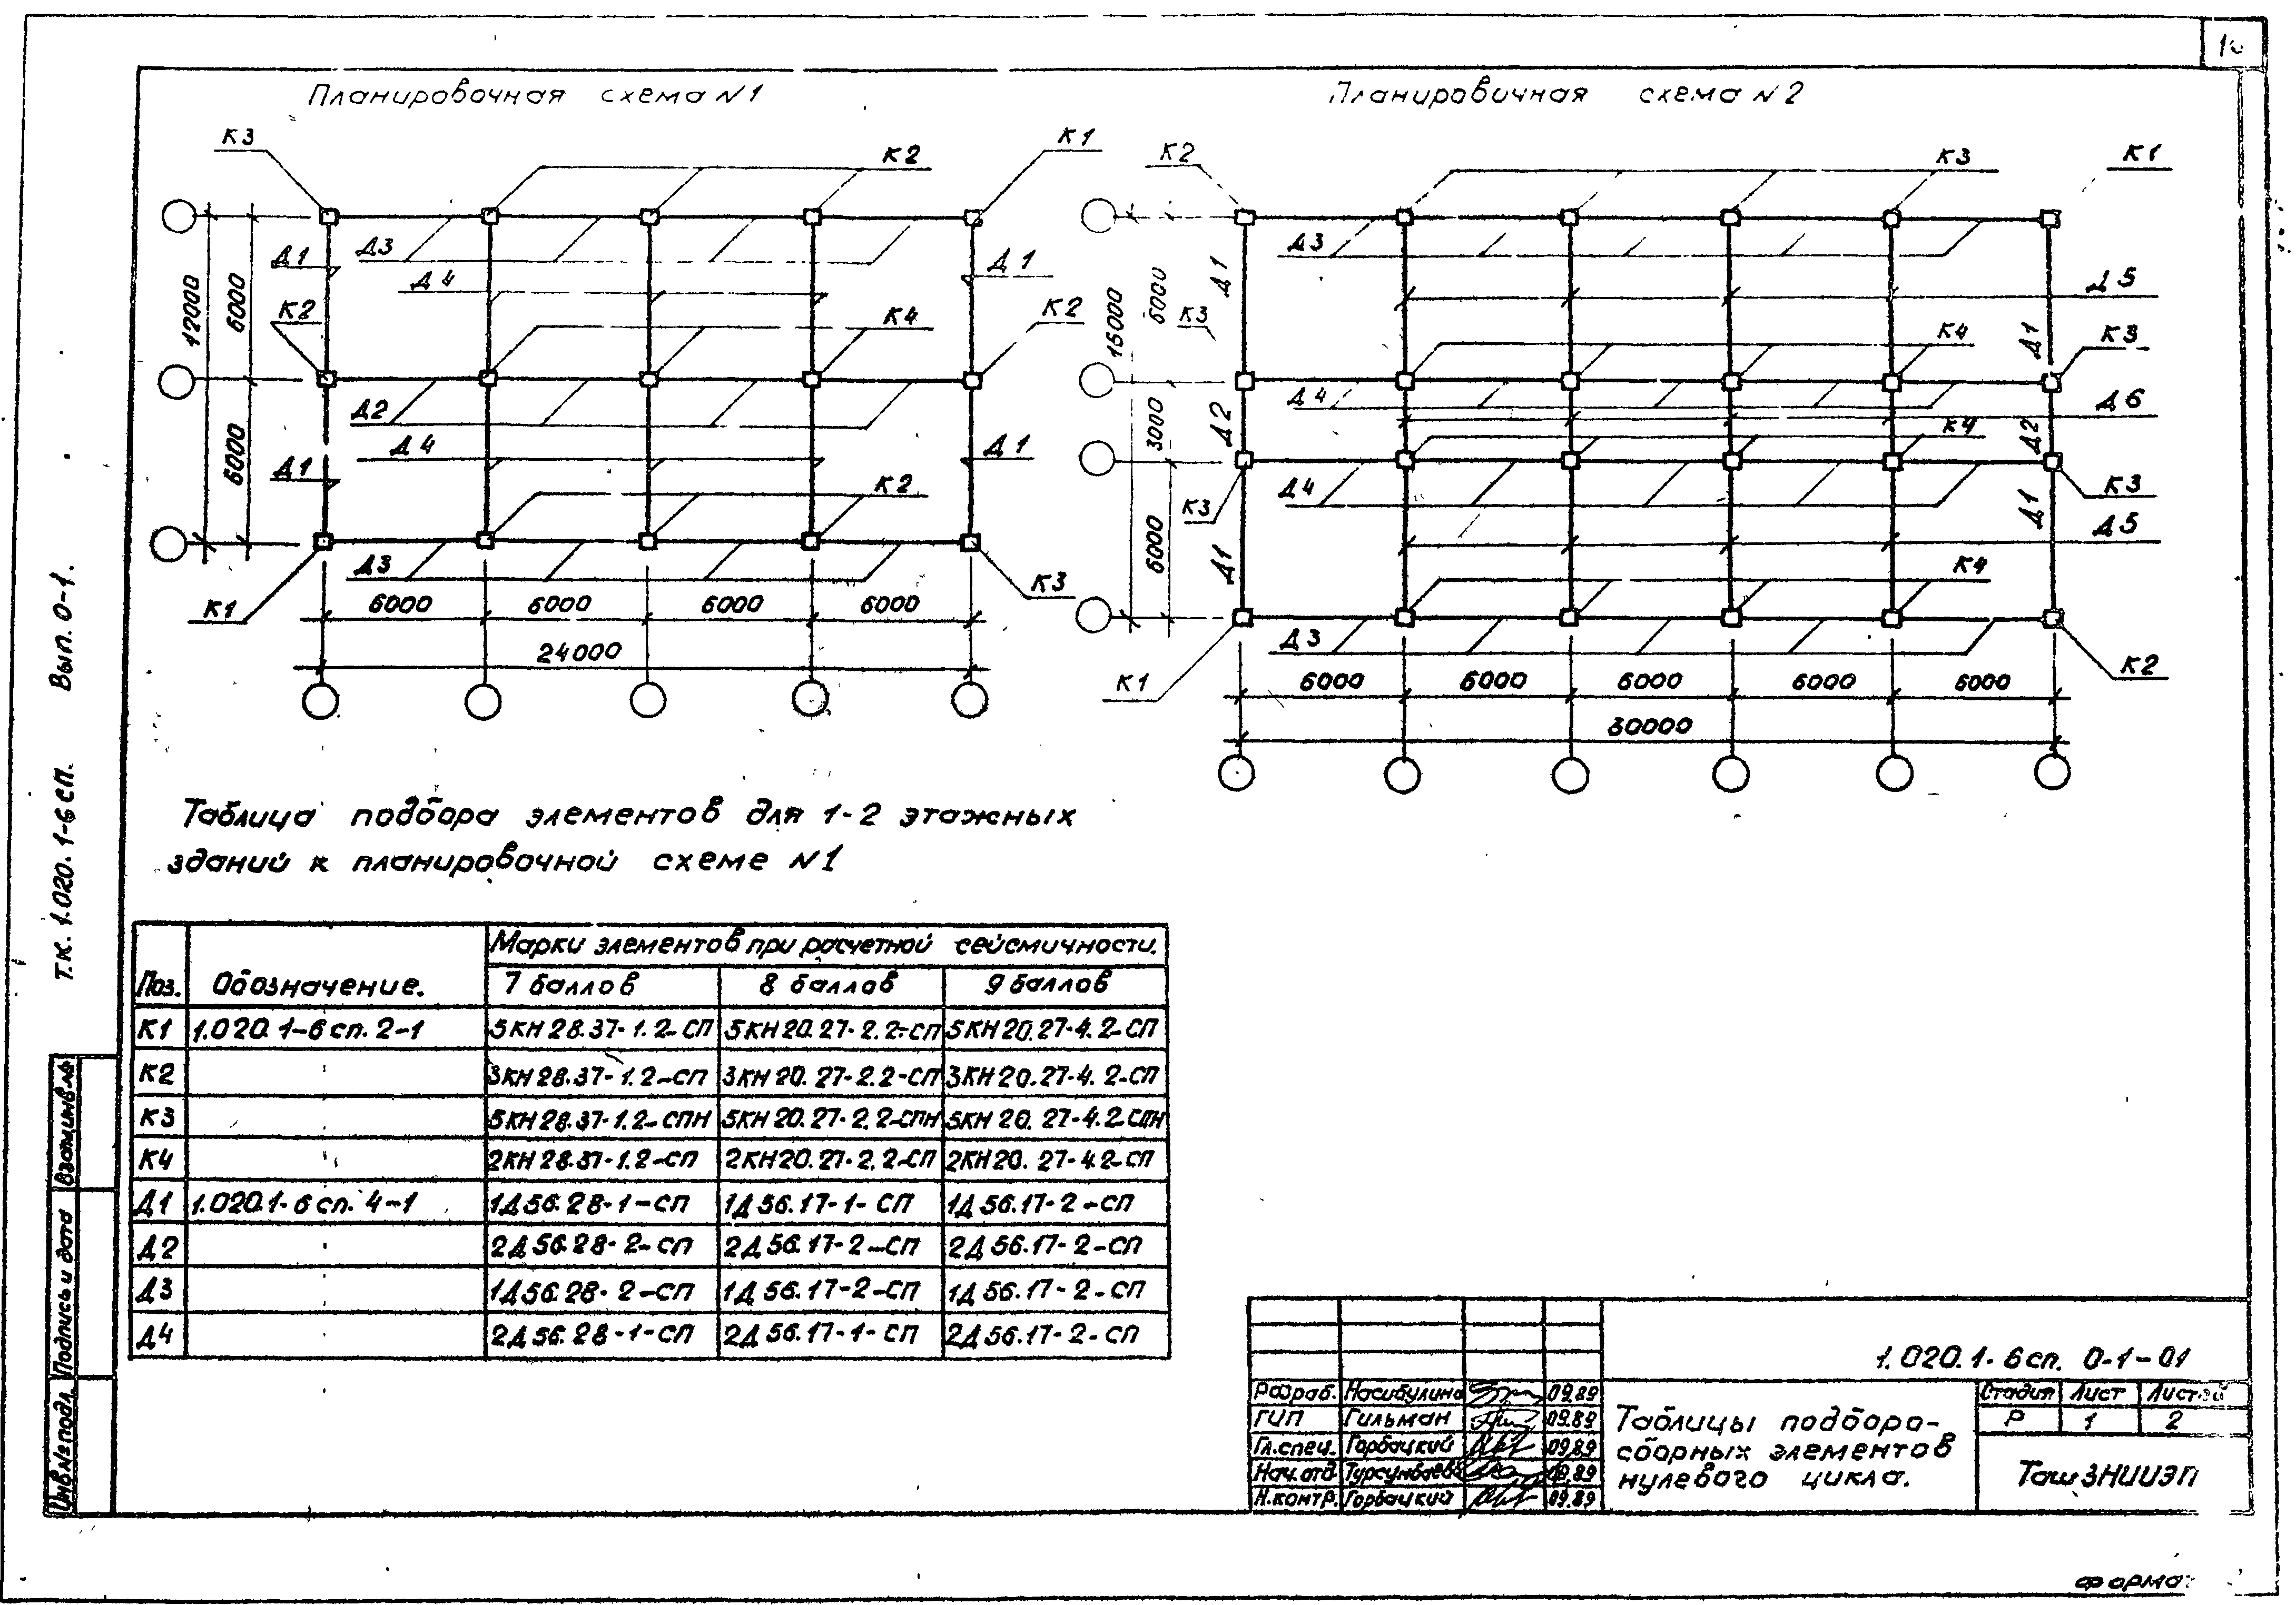 Планировочная схема №1
К3
К2
К1
Д1
Д3
Д1
Д4
12000
6000
К2
К4
К2
Д2
Д4
6000
Д1
Д1
К2
Д3
К1
К3
6000 6000 6000 6000
24000
Планировичная схема №2
К2
К3
К1
Д3
Д1
Д5
15000
6000
К3
К4
Д1
К3
Д4
Д6
3000
Д2
К4
Д2
Д4
К3
К3
Д1
Д5
6000
Д1
К4
Д3
К1
К2
6000 6000 6000 6000 6000
30000
Т.К. 1.020.1-6 сп. Вып. 0-1.
Таблица подбора элементов для 1-2 этажных
зданий к планировочной схеме №1
Поз. Обозначение. Марки элементов при расчетной сейсмичности.
7 баллов 8 баллов 9 баллов
К1 1.020.1-6 сп. 2-1 5КН 28.37-1.2-СП 5КН 20.27-2.2-СП 5КН 20.27-4.2-СП
К2 3КН 28.37-1.2-СП 3КН 20.27-2.2-СП 3КН 20.27-4.2-СП
К3 5КН 28.37-1.2-СПН 5КН 20.27-2.2-СПН 5КН 20.27-4.2-СПН
К4 2КН 28.37-1.2-СП 2КН 20.27-2.2-СП 2КН 20.27-4.2-СП
Д1 1.020.1-6 сп. 4-1 1Д 56.28-1-СП 1Д 56.17-1-СП 1Д 56.17-2-СП
Д2 2Д 56.28-2-СП 2Д 56.17-2-СП 2Д 56.17-2-СП
Д3 1Д 56.28-2-СП 1Д 56.17-2-СП 1Д 56.17-2-СП
Д4 2Д 56.28-1-СП 2Д 56.17-1-СП 2Д 56.17-2-СП
Взам.инв.№
Подпись и дата
Инв.№ подл.
1.020.1-6 сп. 0-1-01
Разраб. Насибулина 09.89
ГИП Гильман 09.89
Гл.спец. Горбацкий 09.89
Нач.отд Турсунбаев 09.89
Н.контр. Горбацкий 09.89
Таблицы подбора
сборных элементов
нулевого цикла.
Стадия Лист Листов
Р 1 2
ТашЗНИИЭП